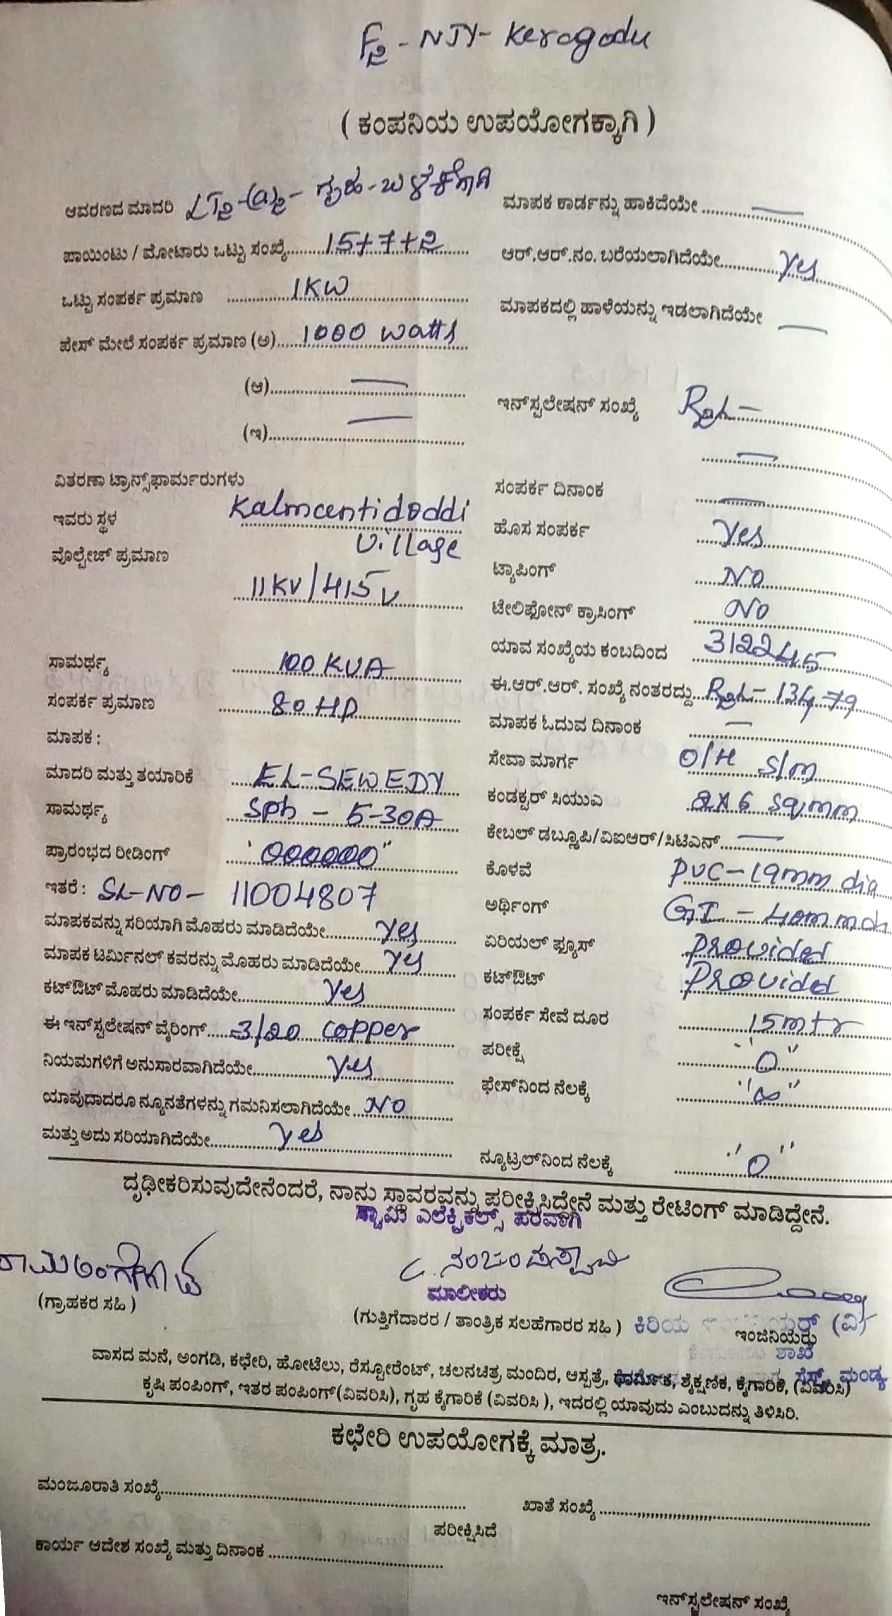 F2 - NJY - Keragodu
( ಕಂಪನಿಯ ಉಪಯೋಗಕ್ಕಾಗಿ )
ಆವರಣದ ಮಾದರಿ LT2-(a)2 - ಗೃಹ - ಬಳಕೆಗಾಗಿ
ಪಾಯಿಂಟು / ಮೋಟಾರು ಒಟ್ಟು ಸಂಖ್ಯೆ 15+7+2
ಒಟ್ಟು ಸಂಪರ್ಕ ಪ್ರಮಾಣ 1KW
ಪೇಸ್ ಮೇಲೆ ಸಂಪರ್ಕ ಪ್ರಮಾಣ (ಅ) 1000 watts
(ಆ)
(ಇ)
ವಿತರಣಾ ಟ್ರಾನ್ಸ್‌ಫಾರ್ಮರುಗಳು
ಇವರು ಸ್ಥಳ Kalmcentidoddi
Village
ವೊಲ್ಟೇಜ್ ಪ್ರಮಾಣ
11KV/415V
ಸಾಮರ್ಥ್ಯ 100 KVA
ಸಂಪರ್ಕ ಪ್ರಮಾಣ 80 HP
ಮಾಪಕ :
ಮಾದರಿ ಮತ್ತು ತಯಾರಿಕೆ EL-SEWEDY
ಸಾಮರ್ಥ್ಯ Sph - 5-30A
ಪ್ರಾರಂಭದ ರೀಡಿಂಗ್ "000000"
ಇತರೆ : SL-NO- 11004807
ಮಾಪಕವನ್ನು ಸರಿಯಾಗಿ ಮೊಹರು ಮಾಡಿದೆಯೇ yes
ಮಾಪಕ ಟರ್ಮಿನಲ್ ಕವರನ್ನು ಮೊಹರು ಮಾಡಿದೆಯೇ yes
ಕಟ್‌ಔಟ್ ಮೊಹರು ಮಾಡಿದೆಯೇ yes
ಈ ಇನ್‌ಸ್ಟಲೇಷನ್ ವೈರಿಂಗ್ 3/20 copper
ನಿಯಮಗಳಿಗೆ ಅನುಸಾರವಾಗಿದೆಯೇ yes
ಯಾವುದಾದರೂ ನ್ಯೂನತೆಗಳನ್ನು ಗಮನಿಸಲಾಗಿದೆಯೇ NO
ಮತ್ತು ಅದು ಸರಿಯಾಗಿದೆಯೇ yes
ಮಾಪಕ ಕಾರ್ಡನ್ನು ಹಾಕಿದೆಯೇ
ಆರ್.ಆರ್.ನಂ. ಬರೆಯಲಾಗಿದೆಯೇ yes
ಮಾಪಕದಲ್ಲಿ ಹಾಳೆಯನ್ನು ಇಡಲಾಗಿದೆಯೇ
ಇನ್‌ಸ್ಟಲೇಷನ್ ಸಂಖ್ಯೆ
ಸಂಪರ್ಕ ದಿನಾಂಕ
ಹೊಸ ಸಂಪರ್ಕ yes
ಟ್ಯಾಪಿಂಗ್ NO
ಟೇಲಿಫೋನ್ ಕ್ರಾಸಿಂಗ್ NO
ಯಾವ ಸಂಖ್ಯೆಯ ಕಂಬದಿಂದ 3122445
ಈ.ಆರ್.ಆರ್. ಸಂಖ್ಯೆ ನಂತರದ್ದು 13479
ಮಾಪಕ ಓದುವ ದಿನಾಂಕ
ಸೇವಾ ಮಾರ್ಗ O/H S/m
ಕಂಡಕ್ಟರ್ ಸಿಯುಎ 2x6 sqmm
ಕೇಬಲ್ ಡಬ್ಲೂಪಿ/ವಿಐಆರ್/ಸಿಟಿಎನ್
ಕೊಳವೆ PVC - 19mm dia
ಅರ್ಥಿಂಗ್ GI - 40mm
ಏರಿಯಲ್ ಫ್ಯೂಸ್ provided
ಕಟ್‌ಔಟ್ Provided
ಸಂಪರ್ಕ ಸೇವೆ ದೂರ 15mtr
ಪರೀಕ್ಷೆ "0"
ಫೇಸ್‌ನಿಂದ ನೆಲಕ್ಕೆ "∞"
ನ್ಯೂಟ್ರಲ್‌ನಿಂದ ನೆಲಕ್ಕೆ "0"
ದೃಢೀಕರಿಸುವುದೇನೆಂದರೆ, ನಾನು ಸ್ಥಾವರವನ್ನು ಪರೀಕ್ಷಿಸಿದ್ದೇನೆ ಮತ್ತು ರೇಟಿಂಗ್ ಮಾಡಿದ್ದೇನೆ.
ಸ್ವಾಮಿ ಎಲೆಕ್ಟ್ರಿಕಲ್ಸ್ ಪರವಾಗಿ
ಮಾಲೀಕರು
(ಗ್ರಾಹಕರ ಸಹಿ )
(ಗುತ್ತಿಗೆದಾರರ / ತಾಂತ್ರಿಕ ಸಲಹೆಗಾರರ ಸಹಿ ) ಕಿರಿಯ ಇಂಜಿನಿಯರ್ (ವಿ)
ಇಂಜಿನಿಯರು
ಶಾಖೆ
ವಾಸದ ಮನೆ, ಅಂಗಡಿ, ಕಛೇರಿ, ಹೋಟೆಲು, ರೆಸ್ಟೋರೆಂಟ್, ಚಲನಚಿತ್ರ ಮಂದಿರ, ಆಸ್ಪತ್ರೆ, ಧಾರ್ಮಿಕ, ಶೈಕ್ಷಣಿಕ, ಕೈಗಾರಿಕೆ, (ವಿವರಿಸಿ) ಮಂಡ್ಯ
ಕೃಷಿ ಪಂಪಿಂಗ್, ಇತರ ಪಂಪಿಂಗ್(ವಿವರಿಸಿ), ಗೃಹ ಕೈಗಾರಿಕೆ (ವಿವರಿಸಿ ), ಇದರಲ್ಲಿ ಯಾವುದು ಎಂಬುದನ್ನು ತಿಳಿಸಿರಿ.
ಕಛೇರಿ ಉಪಯೋಗಕ್ಕೆ ಮಾತ್ರ.
ಮಂಜೂರಾತಿ ಸಂಖ್ಯೆ
ಖಾತೆ ಸಂಖ್ಯೆ
ಪರೀಕ್ಷಿಸಿದೆ
ಕಾರ್ಯ ಆದೇಶ ಸಂಖ್ಯೆ ಮತ್ತು ದಿನಾಂಕ
ಇನ್‌ಸ್ಟಲೇಷನ್ ಸಂಖ್ಯೆ